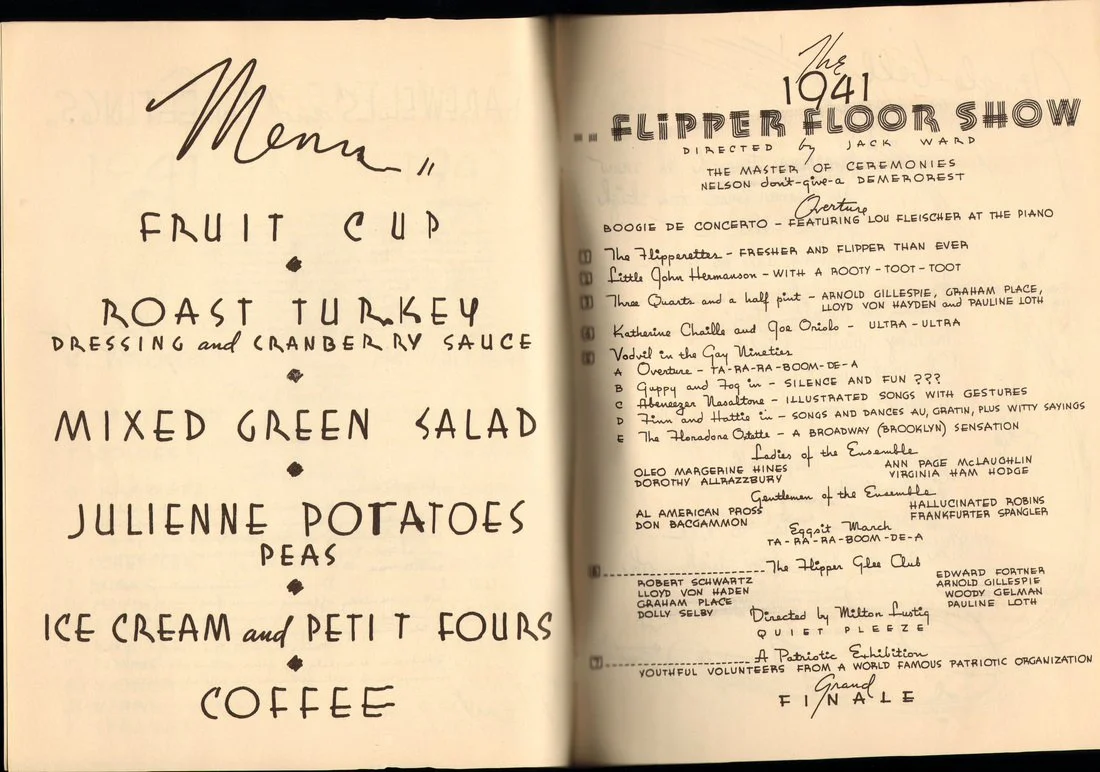 Menu „
FRUIT CUP
ROAST TURKEY
DRESSING and CRANBERRY SAUCE
MIXED GREEN SALAD
JULIENNE POTATOES
PEAS
ICE CREAM and PETIT FOURS
COFFEE
The
1941
.. FLIPPER FLOOR SHOW
DIRECTED by JACK WARD
THE MASTER OF CEREMONIES
NELSON don't-give-a DEMEROREST
Overture
BOOGIE DE CONCERTO - FEATURING LOU FLEISCHER AT THE PIANO
1 The Flipperettes - FRESHER AND FLIPPER THAN EVER
2 Little John Hermanson - WITH A ROOTY-TOOT-TOOT
3 Three Quarts and a half pint - ARNOLD GILLESPIE, GRAHAM PLACE,
LLOYD VON HAYDEN and PAULINE LOTH
4 Katherine Chaille and Joe Oriolo - ULTRA-ULTRA
5 Vodvil in the Gay Nineties
A Overture - TA-RA-RA-BOOM-DE-A
B Guppy and Fog in - SILENCE AND FUN ???
C Abeneezer Nasaltone - ILLUSTRATED SONGS WITH GESTURES
D Finn and Hattie in - SONGS AND DANCES AU, GRATIN, PLUS WITTY SAYINGS
E The Floradora Octette - A BROADWAY (BROOKLYN) SENSATION
Ladies of the Ensemble
OLEO MARGERINE HINES ANN PAGE McLAUGHLIN
DOROTHY ALLRAZZBURY VIRGINIA HAM HODGE
Gentlemen of the Ensemble
AL AMERICAN PROSS HALLUCINATED ROBINS
DON BACGAMMON FRANKFURTER SPANGLER
Eggsit March
TA-RA-RA-BOOM-DE-A
6 The Flipper Glee Club
ROBERT SCHWARTZ EDWARD FORTNER
LLOYD VON HADEN ARNOLD GILLESPIE
GRAHAM PLACE WOODY GELMAN
DOLLY SELBY PAULINE LOTH
Directed by Milton Lustig
QUIET PLEEZE
7 A Patriotic Exhibition
YOUTHFUL VOLUNTEERS FROM A WORLD FAMOUS PATRIOTIC ORGANIZATION
Grand
FINALE